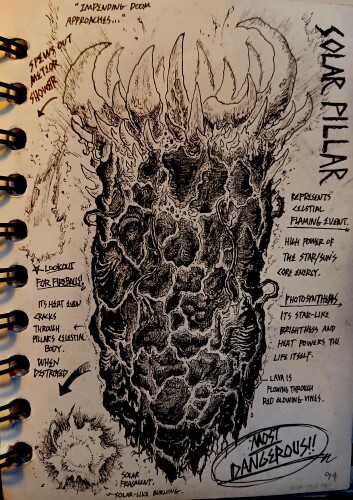 "IMPENDING DOOM
APPROACHES..."
SPEWS OUT
METEOR
SHOWER
SOLAR PILLAR
REPRESENTS
CELESTIAL
FLAMING EVENT.
HIGH POWER OF
THE STAR/SUN'S
CORE ENERGY.
PHOTOSYNTHESIS,
ITS STAR-LIKE
BRIGHTNESS AND
HEAT POWERS THE
LIFE ITSELF.
LAVA IS
FLOWING THROUGH
RED GLOWING VINES.
LOOKOUT
FOR FIREBALLS!
ITS HEAT EVEN
CRACKS
THROUGH
PILLAR'S CELESTIAL
BODY.
WHEN
DESTROYED
SOLAR
FRAGMENT.
SOLAR-LIKE BURNING.
"MOST
DANGEROUS!!
94